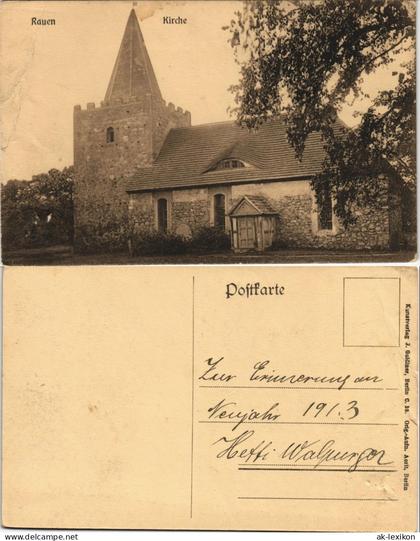 Rauen Kirche
Postkarte
Zur Erinnerung an
Neujahr 1913
Hetti Walpurger
Kunstverlag J. Goldiner, Berlin C. 25. Orig.-Aufn. Berlin
© ansichtskarten-lexikon.de
ak-lexikon